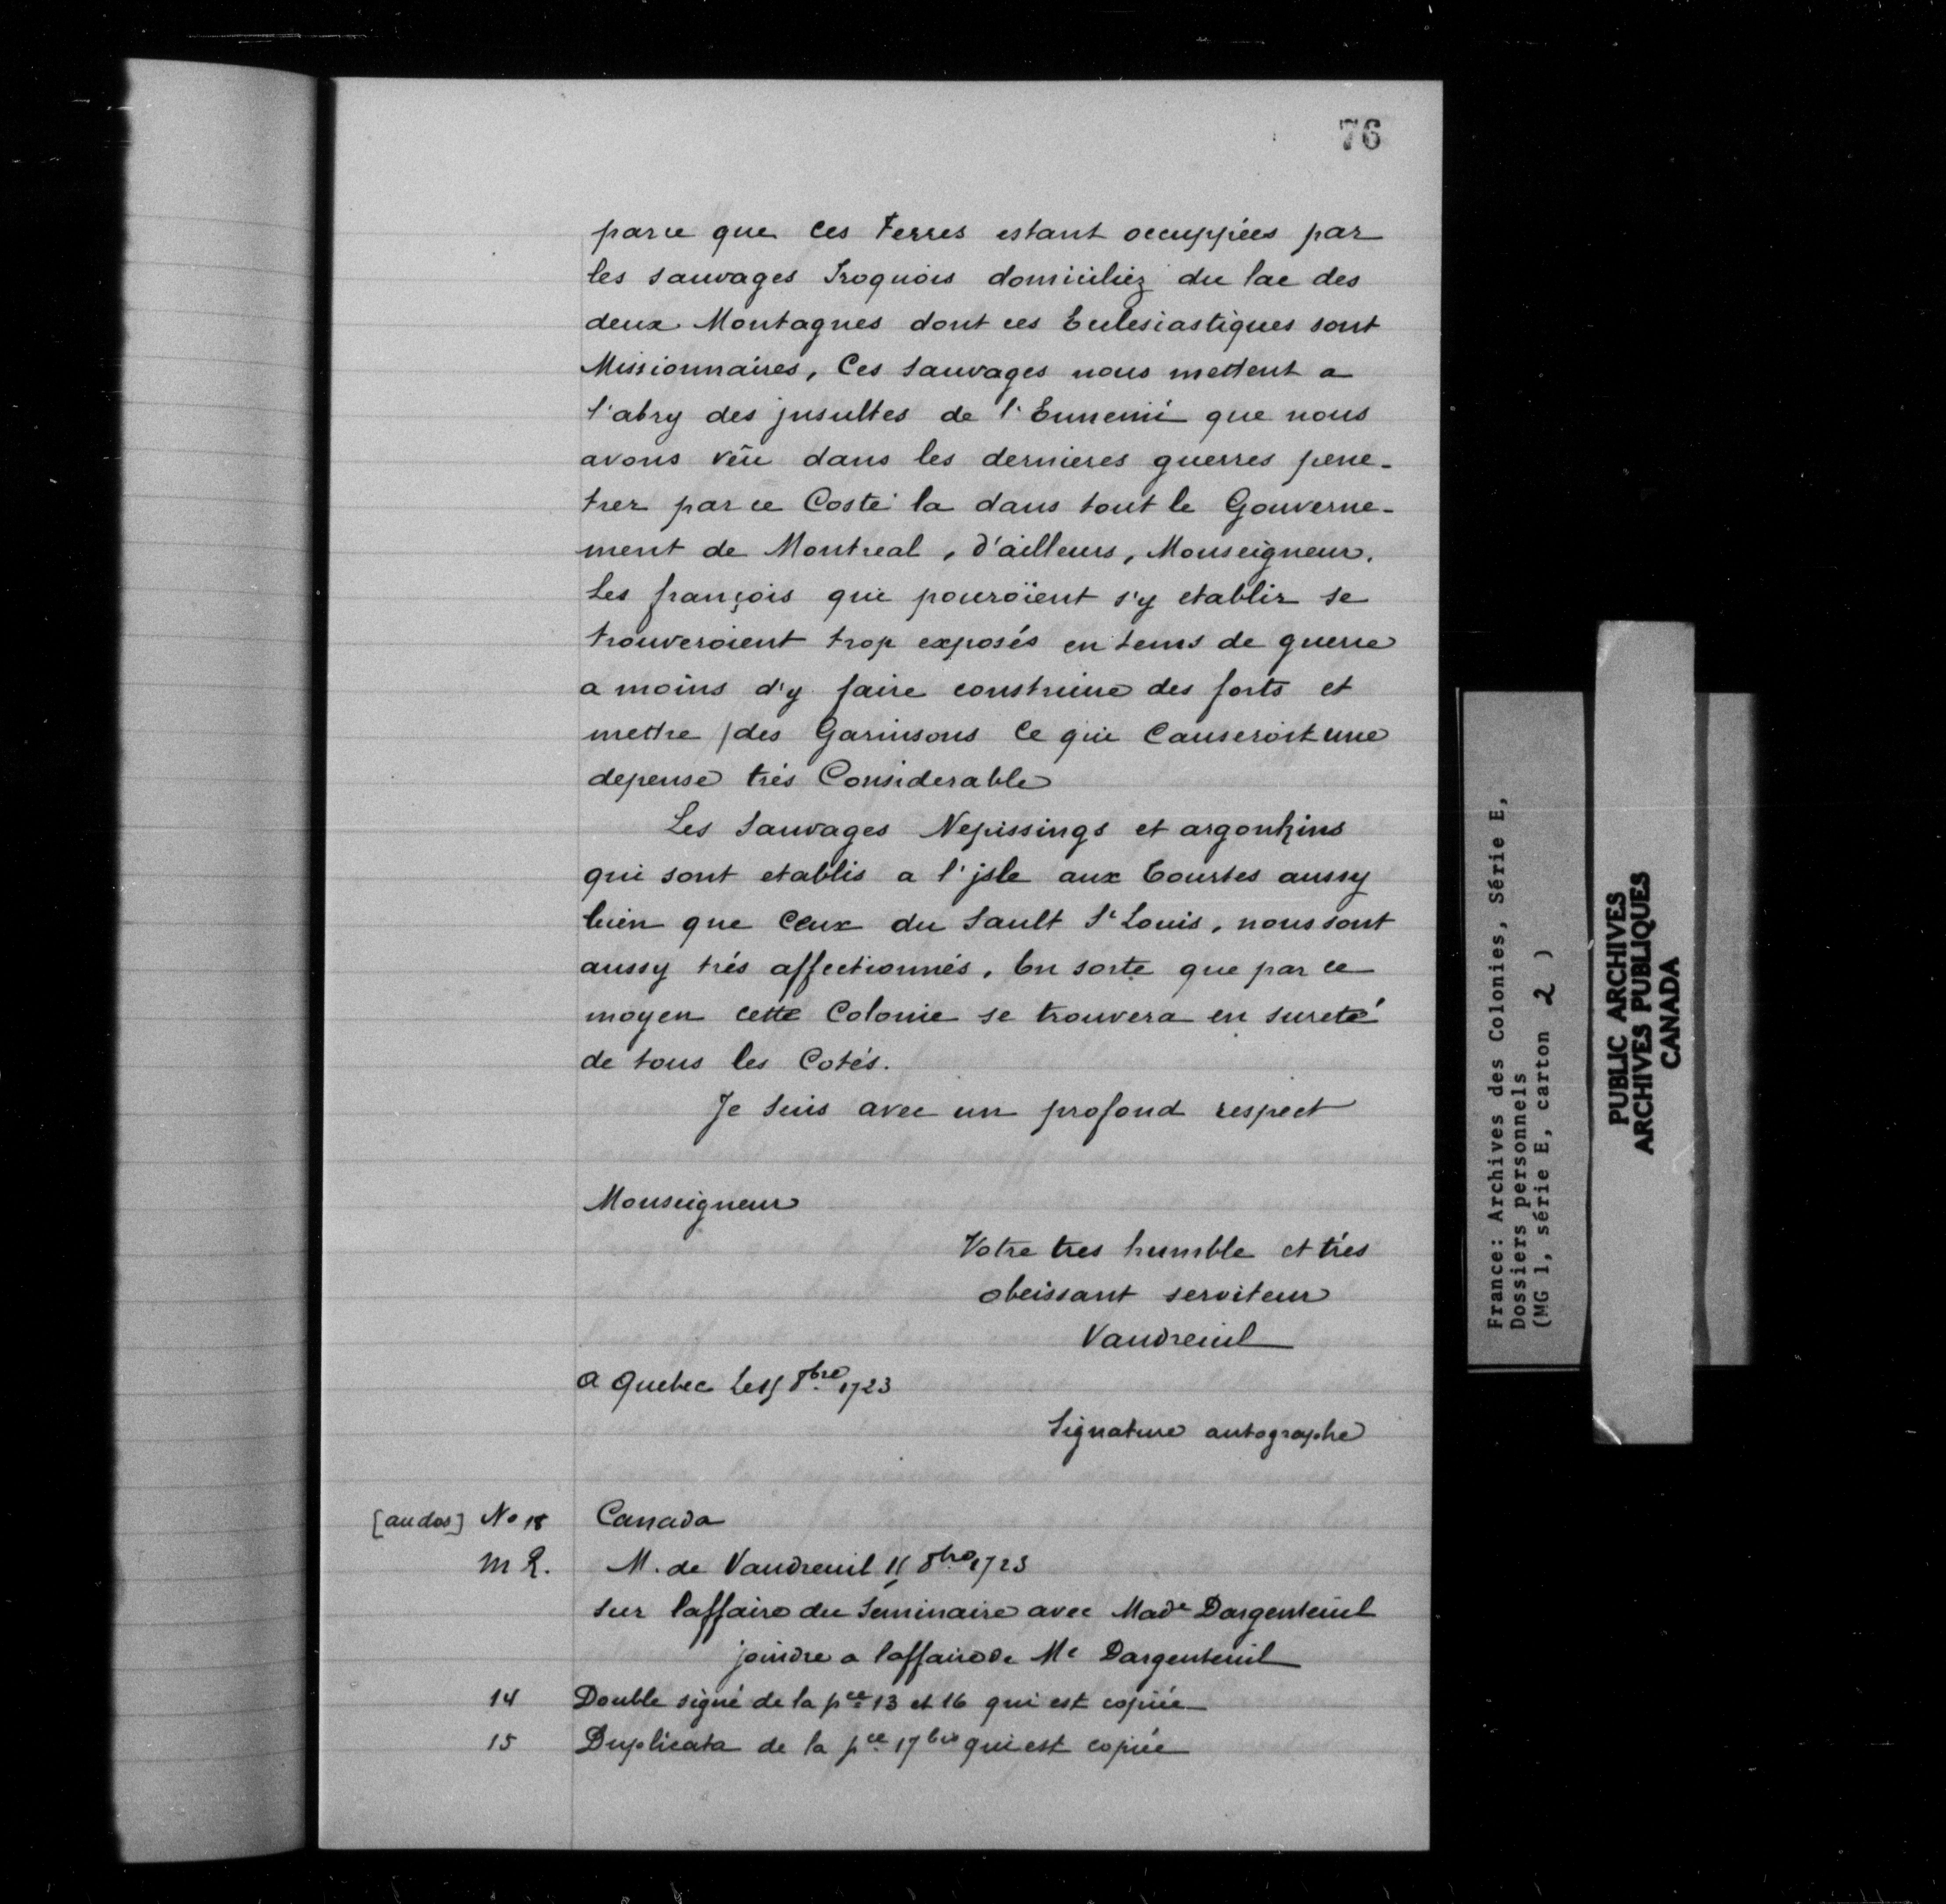 76
parce que ces Terres estant occuppées par
les sauvages Iroquois domiciliez du lac des
deux Montagnes dont ces Eclesiastiques sont
Missionnaires, Ces sauvages nous mettent a
l'abry des jnsultes de l'Ennemi que nous
avons vêu dans les dernieres guerres pene-
trer par ce Costé la dans tout le Gouverne-
ment de Montreal, d'ailleurs, Monseigneur,
Les françois qui pouroïent s'y etablir se
trouveroient trop exposés en tems de guerre
a moins d'y faire construire des forts et
mettre des Garnisons Ce qui Causeroit une
depense trés Considerable
Les Sauvages Nepissings et argonkins
qui sont etablis a l'jsle aux Tourtes aussy
bien que Ceux du Sault St Louis, nous sont
aussy trés affectionnés, En sorte que par ce
moyen cette Colonie se trouvera en sureté
de tous les Cotés.
Je suis avec un profond respect
Monseigneur
Votre tres humble et trés
obeissant serviteur
Vaudreuil
a Quebec le 8bre 1723
Signature autographe
[au dos] No 18 Canada
M. de Vaudreuil 8bre 1723
sur l'affaire du Seminaire avec Made Dargenteuil
joindre a l'affaire de Me Dargenteuil
14 Double signé de la pce 13 et 16 qui est copiée
15 Duplicata de la pce 17 bis qui est copiée
France: Archives des Colonies, Série E,
Dossiers personnels
(MG 1, série E, carton 2 )
PUBLIC ARCHIVES
ARCHIVES PUBLIQUES
CANADA